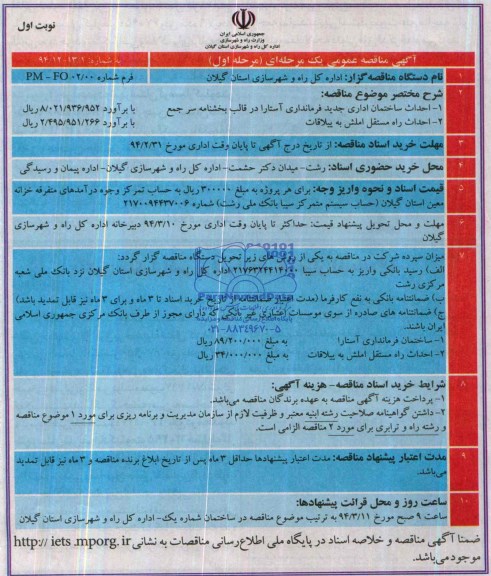 نوبت اول
جمهوری اسلامی ایران
وزارت راه و شهرسازی
اداره کل راه و شهرسازی استان گیلان
آگهی مناقصه عمومی یک مرحله‌ای (مرحله اول)
به شماره: ۹۴-۱۲-۱۳/۱
۱ نام دستگاه مناقصه‌گزار: اداره کل راه و شهرسازی استان گیلان
فرم شماره PM – FO ۰۲/۰۰
۲ شرح مختصر موضوع مناقصه:
۱- احداث ساختمان اداری جدید فرمانداری آستارا در قالب بخشنامه سر جمع با برآورد ۸/۰۲۱/۹۳۶/۹۵۲ ریال
۲- احداث راه مستقل املش به ییلاقات با برآورد ۲/۴۹۵/۹۵۱/۲۶۶ ریال
۳ مهلت خرید اسناد مناقصه: از تاریخ درج آگهی تا پایان وقت اداری مورخ ۹۴/۲/۳۱
۴ محل خرید حضوری اسناد: رشت- میدان دکتر حشمت- اداره کل راه و شهرسازی گیلان- اداره پیمان و رسیدگی
۵ قیمت اسناد و نحوه واریز وجه: برای هر پروژه به مبلغ ۳۰۰۰۰۰ ریال به حساب تمرکز وجوه درآمدهای متفرقه خزانه
معین استان گیلان (حساب سیستم متمرکز سیبا بانک ملی رشت) شماره ۲۱۷۰۰۹۴۴۳۷۰۰۶
۶ مهلت و محل تحویل پیشنهاد قیمت: حداکثر تا پایان وقت اداری مورخ ۹۴/۳/۱۰ دبیرخانه اداره کل راه و شهرسازی
گیلان
۷ میزان سپرده شرکت در مناقصه به یکی از روش های زیر تحویل دستگاه مناقصه گزار گردد:
الف) رسید بانکی واریز به حساب سیبا اداره کل راه و شهرسازی استان گیلان نزد بانک ملی شعبه
مرکزی رشت
ب) ضمانتنامه بانکی به نفع کارفرما (مدت اعتبار ضمانتنامه از تاریخ خرید اسناد تا ۳ ماه و برای ۳ ماه نیز قابل تمدید باشد)
ج) ضمانتنامه های صادره از سوی موسسات اعتباری غیر بانکی که دارای مجوز از طرف بانک مرکزی جمهوری اسلامی
ایران باشند.
۱- ساختمان فرمانداری آستارا به مبلغ ۸۹/۲۰۰/۰۰۰ ریال
۲- احداث راه مستقل املش به ییلاقات به مبلغ ۳۴/۰۰۰/۰۰۰ ریال
۰۲۱-۸۸۳۴۹۶۷۰-۵
۸ شرایط خرید اسناد مناقصه- هزینه آگهی:
۱- پرداخت هزینه آگهی مناقصه به عهده برندگان مناقصه می‌باشد.
۲- داشتن گواهینامه صلاحیت رشته ابنیه معتبر و ظرفیت لازم از سازمان مدیریت و برنامه ریزی برای مورد ۱ موضوع مناقصه
و رشته راه و ترابری برای مورد ۲ مناقصه الزامی است.
۹ مدت اعتبار پیشنهاد مناقصه: مدت اعتبار پیشنهادها حداقل ۳ ماه پس از تاریخ ابلاغ برنده مناقصه و ۳ ماه نیز قابل تمدید
می‌باشد.
۱۰ ساعت روز و محل قرائت پیشنهادها:
ساعت ۹ صبح مورخ ۹۴/۳/۱۱ به ترتیب موضوع مناقصه در ساختمان شماره یک- اداره کل راه و شهرسازی استان گیلان
ضمنا آگهی مناقصه و خلاصه اسناد در پایگاه ملی اطلاع‌رسانی مناقصات به نشانی http:// iets .mporg. ir
موجود می‌باشد.